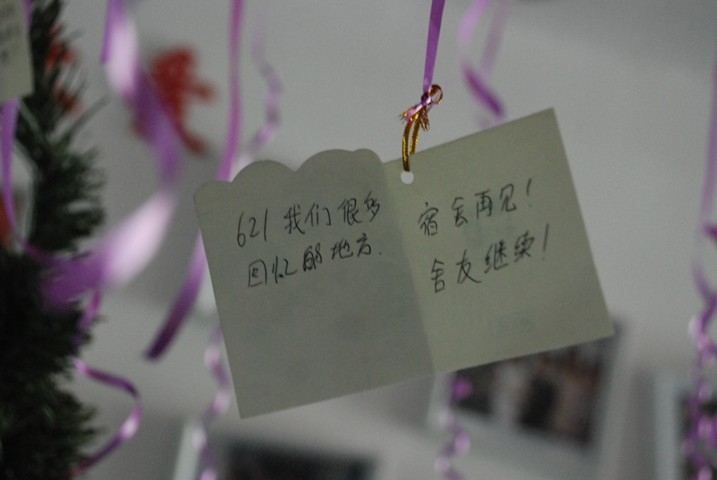 621 我们很多
回忆的地方.
宿舍再见！
舍友继续！